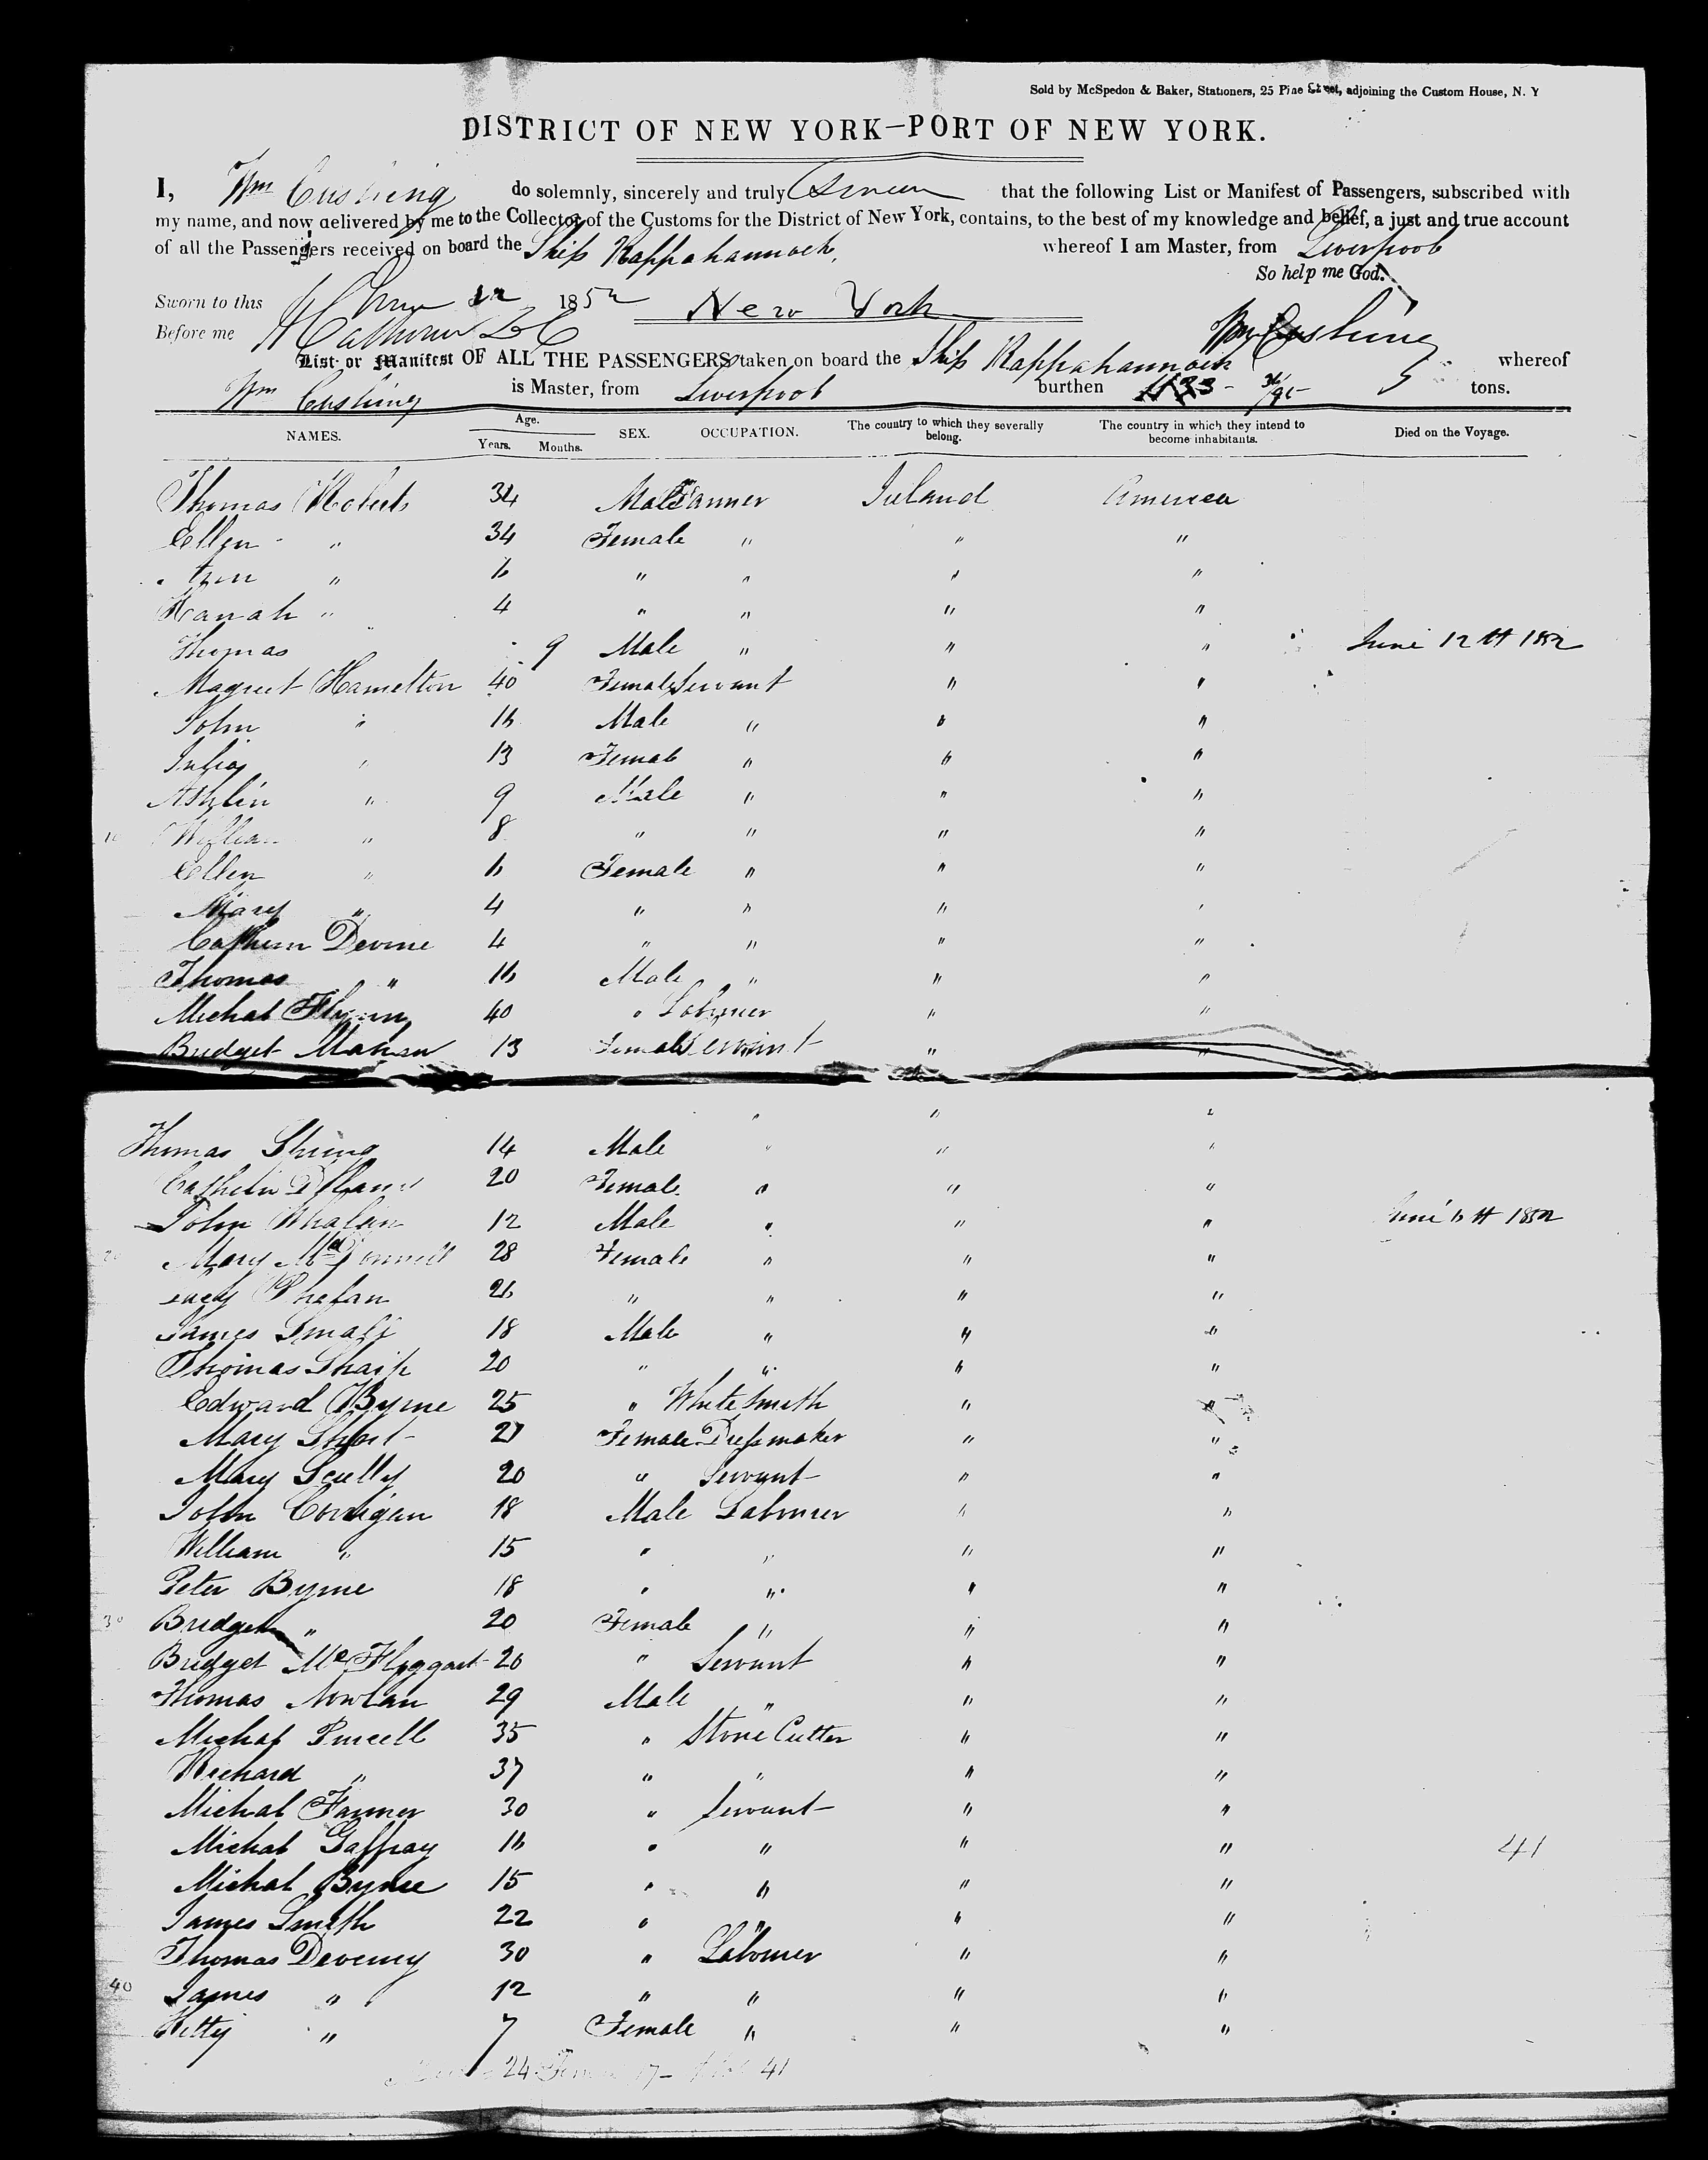 Sold by McSpedon & Baker, Stationers, 25 Pine Street, adjoining the Custom House, N. Y
DISTRICT OF NEW YORK—PORT OF NEW YORK.
I, Wm Cushing do solemnly, sincerely and truly Swear that the following List or Manifest of Passengers, subscribed with
my name, and now delivered by me to the Collector of the Customs for the District of New York, contains, to the best of my knowledge and belief, a just and true account
of all the Passengers received on board the Ship Rappahannock, whereof I am Master, from Liverpool
So help me God.
Sworn to this 1852 New York
Before me Wm Cushing
List or Manifest OF ALL THE PASSENGERS taken on board the Ship Rappahannock whereof
Wm Cushing is Master, from Liverpool burthen 1133 tons.
NAMES. Age. Years. Months. SEX. OCCUPATION. The country to which they severally belong. The country in which they intend to become inhabitants. Died on the Voyage.
Thomas 34 Male Ireland America
Ellen " 34 Female " " "
Ann " 6 " " " "
Hanah " 4 " " " "
Thomas 9 Male " " " June 12th 1852
Magreet Hamelton 40 Female Servant " "
John " 16 Male " " "
Julia " 13 Female " " "
" 9 Male " " "
10 William " 8 " " " "
Ellen " 6 Female " " "
Mary " 4 " " " "
Devine 4 " " " "
Thomas " 16 Male " " "
Michal Flynn 40 " Labourer " "
Bridget Mahon 13 Female Servant " "
Thomas 14 Male " " "
20 Female " " "
John Whalen 12 Male " " " June 6th 1852
Mary McDonnell 28 Female " " "
Phelan 26 " " " "
James Small 18 Male " " "
Thomas Sharp 20 " " " "
Edward Byrne 25 " White Smith " "
Mary Short 27 Female Dressmaker " "
Mary Scully 20 " Servant " "
John Corrigan 18 Male Labourer " "
William " 15 " " " "
Peter Byrne 18 " " " "
30 Bridget " 20 Female " " "
Bridget 20 " Servant " "
Thomas Nowlan 29 Male " " "
Michal Purcell 35 " Stone Cutter " "
Richard " 37 " " " "
Michal Farmer 30 " Servant " "
Michal Gaffray 16 " " " " 41
Michal Byrne 15 " " " "
James Smith 22 " " " "
Thomas Deveney 30 " Labourer " "
40 James " 12 " " " "
Kitty " 7 Female " " "
24 17 41